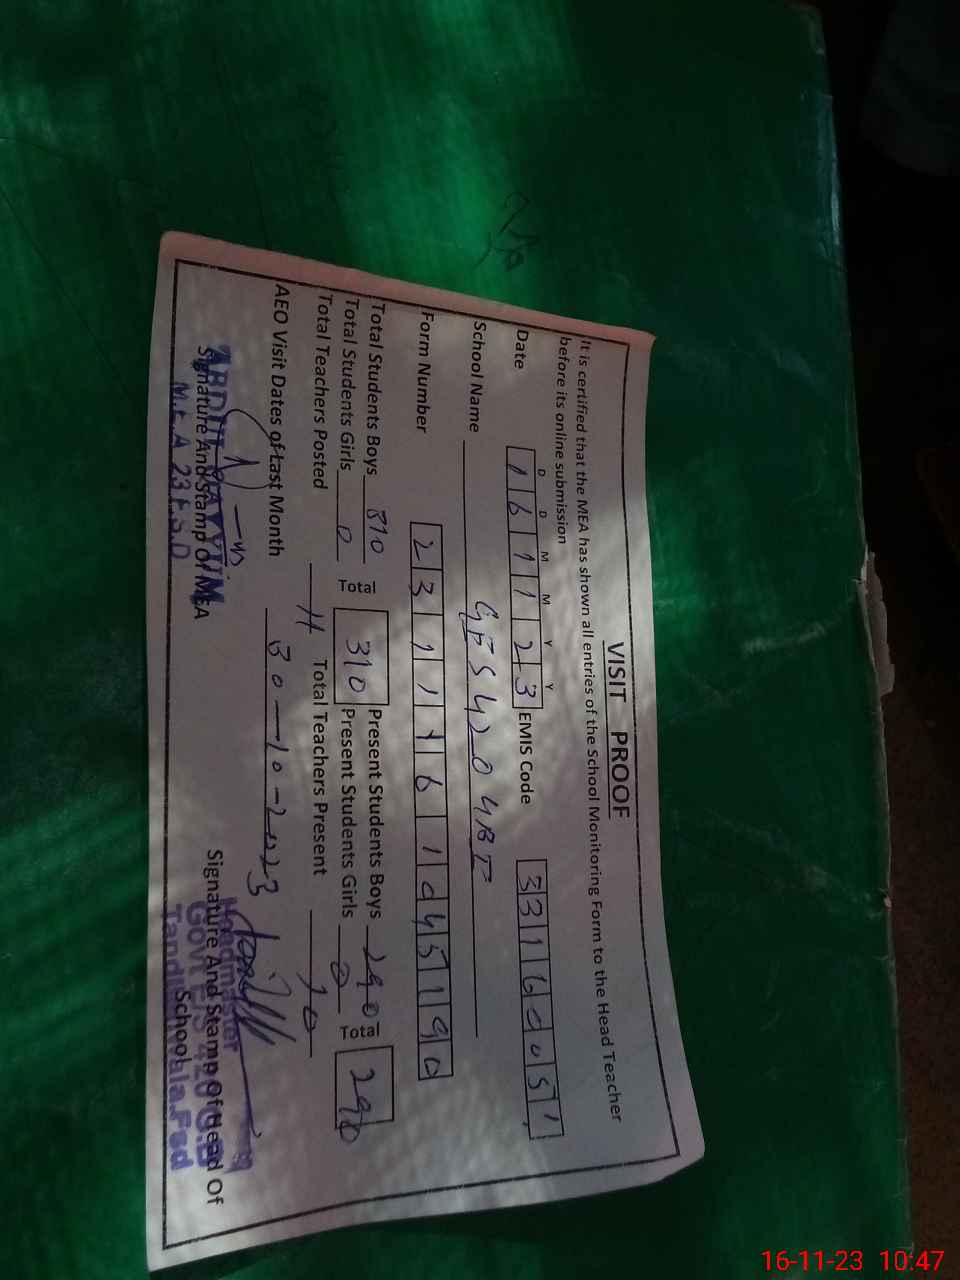 VISIT PROOF
It is certified that the MEA has shown all entries of the School Monitoring Form to the Head Teacher
before its online submission
D D M M Y Y
Date 1 6 1 1 2 3 EMIS Code 3 3 1 6 0 0 5 1
School Name GES 420 GBT
Form Number 2 3 1 1 1 6 1 0 4 5 1 9 0
Total Students Boys 310 Total 310 Present Students Boys 290 Total 290
Total Students Girls 0 Present Students Girls 0
Total Teachers Posted 11 Total Teachers Present 10
AEO Visit Dates of Last Month 30-10-2023
ABDUL QAYYUM
Signature And Stamp Of MEA
M.E.A 23 F.S.D
Headmaster
Signature And Stamp Of Head Of
School
16-11-23 10:47